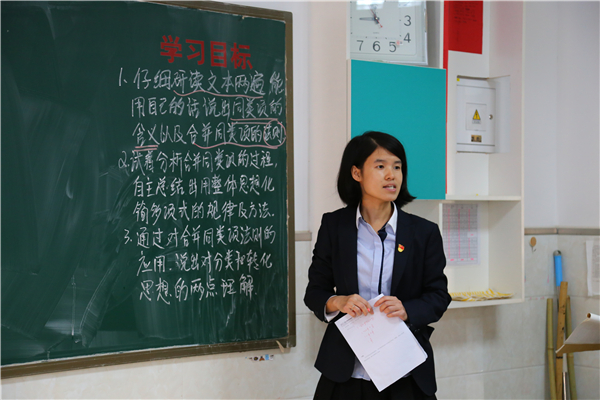 学习目标
1. 仔细研读文本两遍,能
用自己的话说出同类项的
含义以及合并同类项的法则
2. 试着分析合并同类项的过程,
自主总结出用整体思想化
简多项式的规律及方法.
3. 通过对合并同类项法则的
应用.说出对分类和转化
思想的两点理解.
12
3
4
5
6
7